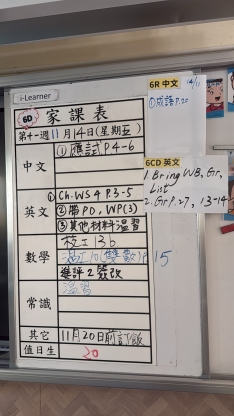 i-Learner
6D 家課表
第十一週11月14日(星期五)
中文
①應試P.4-6
英文
①Ch.WS4 P.3-5
②帶PD, WP(3)
③其他材料溫習
數學
校工13b
温工10(雙數)P.15
進評2簽改
常識
溫習
其它
11月20日前訂飯
值日生
20
6R 中文
14/11
①成語P.20
6CD 英文
1. Bring WB, Gr,
List
2. Gr P.27, 13-14